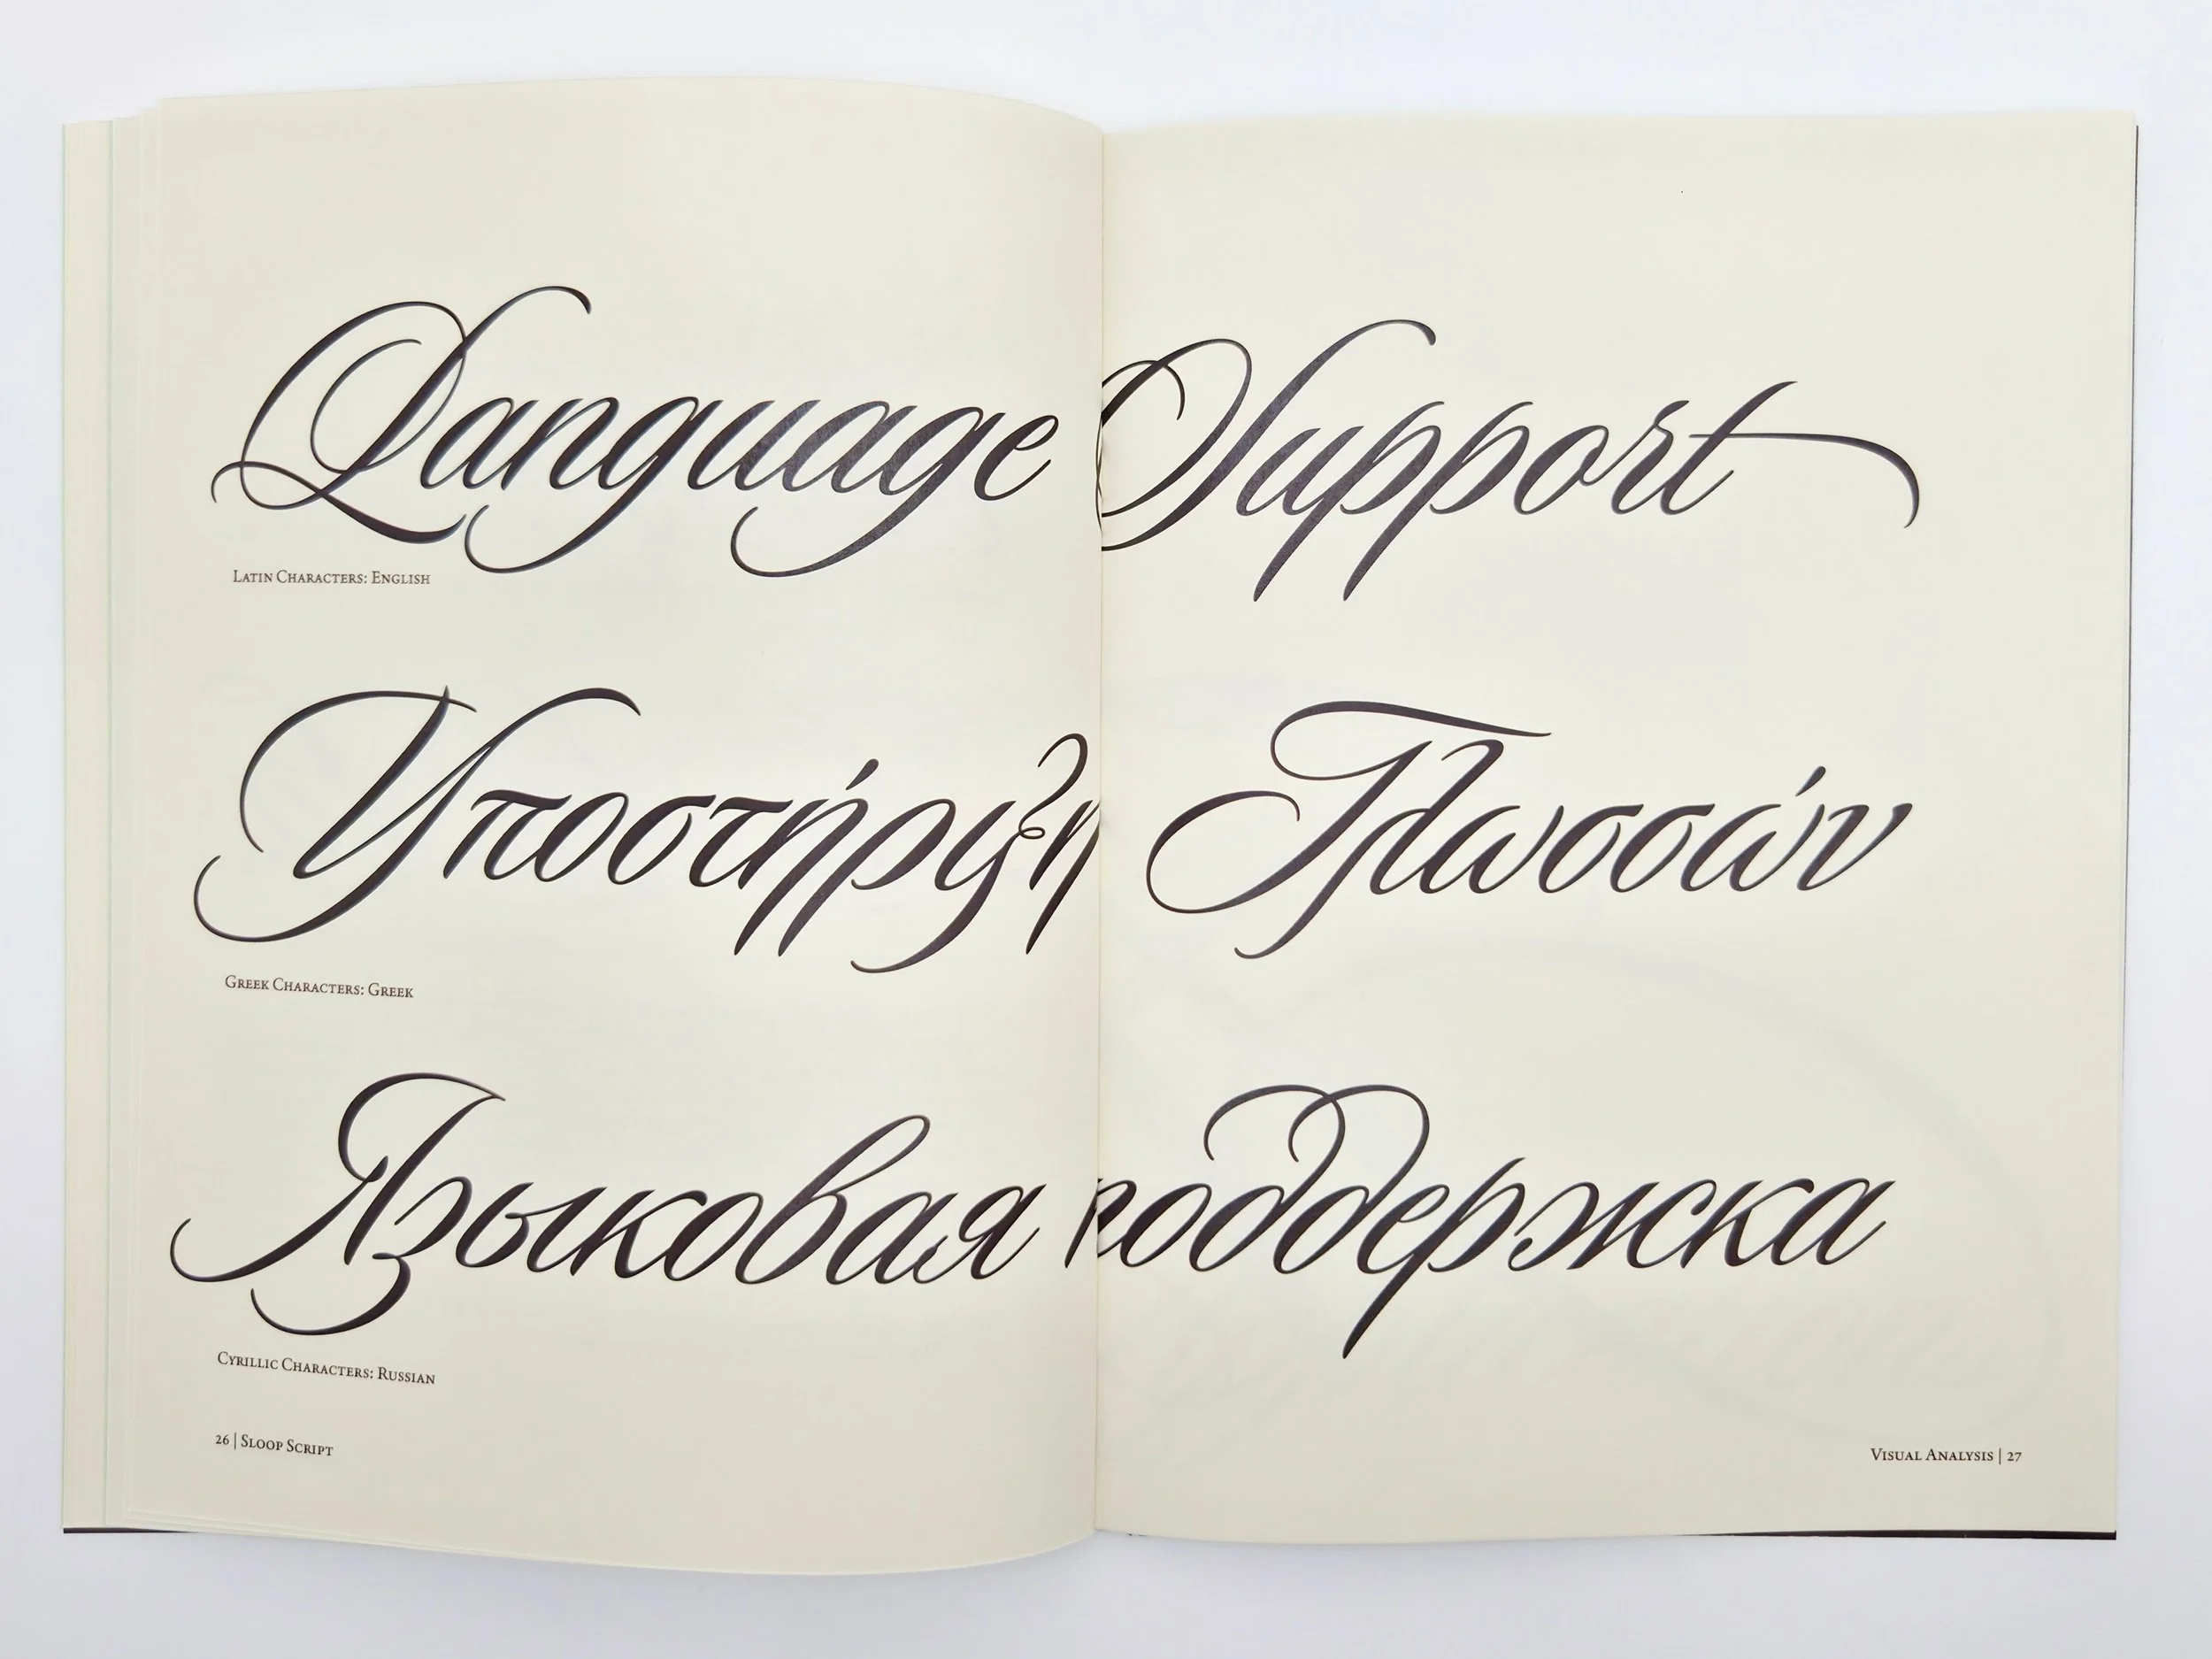 Language Support
LATIN CHARACTERS: ENGLISH
Υποστήριξη Γλωσσών
GREEK CHARACTERS: GREEK
Языковая поддержка
CYRILLIC CHARACTERS: RUSSIAN
26 | SLOOP SCRIPT
VISUAL ANALYSIS | 27